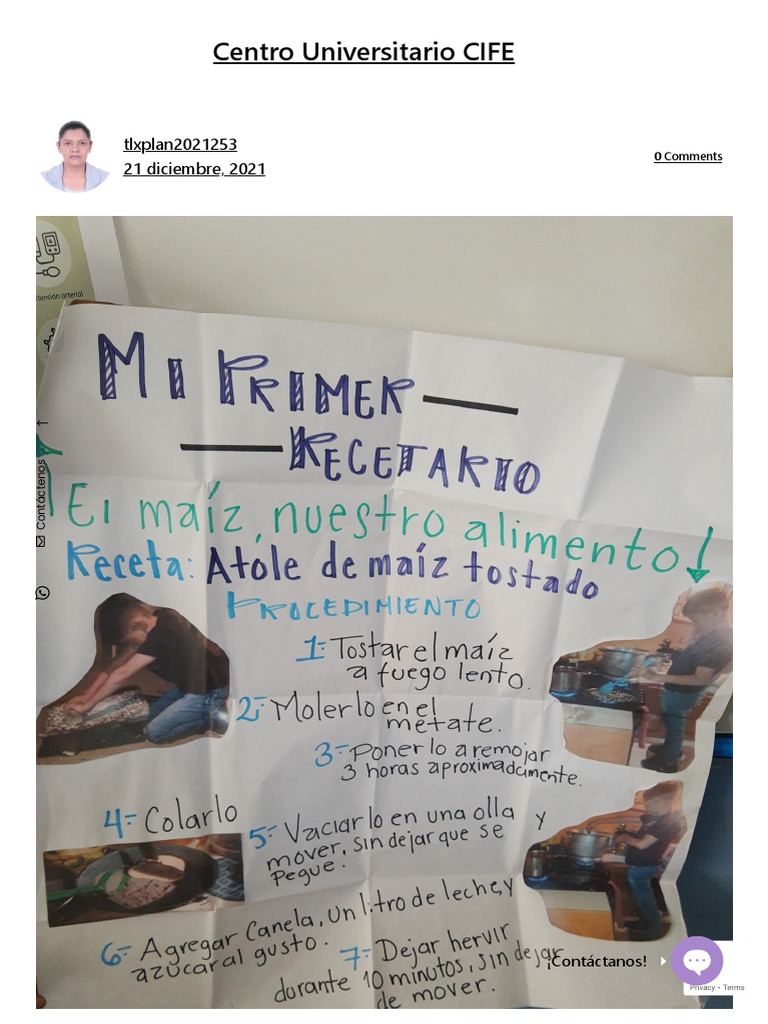 Centro Universitario CIFE
tlxplan2021253
21 diciembre, 2021
0 Comments
tensión arterial
MI PRIMER
RECETARIO
El maíz, nuestro alimento
Receta: Atole de maíz tostado
PROCEDIMIENTO
1:- Tostar el maíz
a fuego lento.
2:- Molerlo en el
metate.
3:- Ponerlo a remojar
3 horas aproximadamente.
4:- Colarlo
5:- Vaciarlo en una olla y
mover, sin dejar que se
pegue.
6:- Agregar Canela, un litro de leche, y
azucar al gusto.
7:- Dejar hervir
durante 10 minutos, sin dejar
de mover.
Contáctenos
¡Contáctanos!
Privacy - Terms